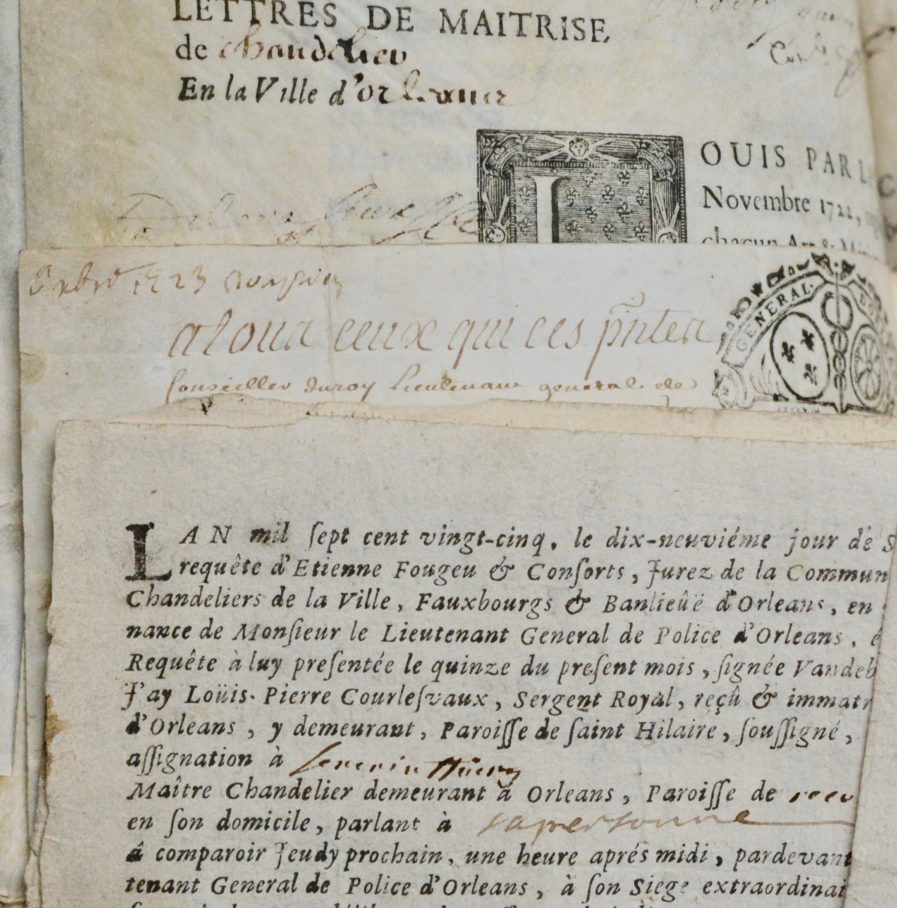 LETTRES DE MAITRISE
de chandelier
En la Ville d'orleans
LOUIS PAR L
Novembre 1722,
chacun Art &
1723
atous ceux qui ces pñtes
Conseiller du roy Lieutenant general de
GENERAL
LAN mil ſept cent vingt-cinq, le dix-neuviéme jour de S
requête d'Etienne Fougeu & Conſorts, Jurez de la Commun
Chandeliers de la Ville, Fauxbourgs & Banlieûë d'Orleans, en
nance de Monſieur le Lieutenant General de Police d'Orleans,
Requête à luy preſentée le quinze du preſent mois, ſignée Vandeb
J'ay Loüis-Pierre Courleſvaux, Sergent Royal, reçû & immatr
d'Orleans, y demeurant, Paroiſſe de ſaint Hilaire, ſouſſigné,
aſſignation à
Maître Chandelier demeurant à Orleans, Paroiſſe de
en ſon domicile, parlant à sa personne
á comparoir Jeudy prochain, une heure aprés midi, pardevant
tenant General de Police d'Orleans, à ſon Siege extraordinai